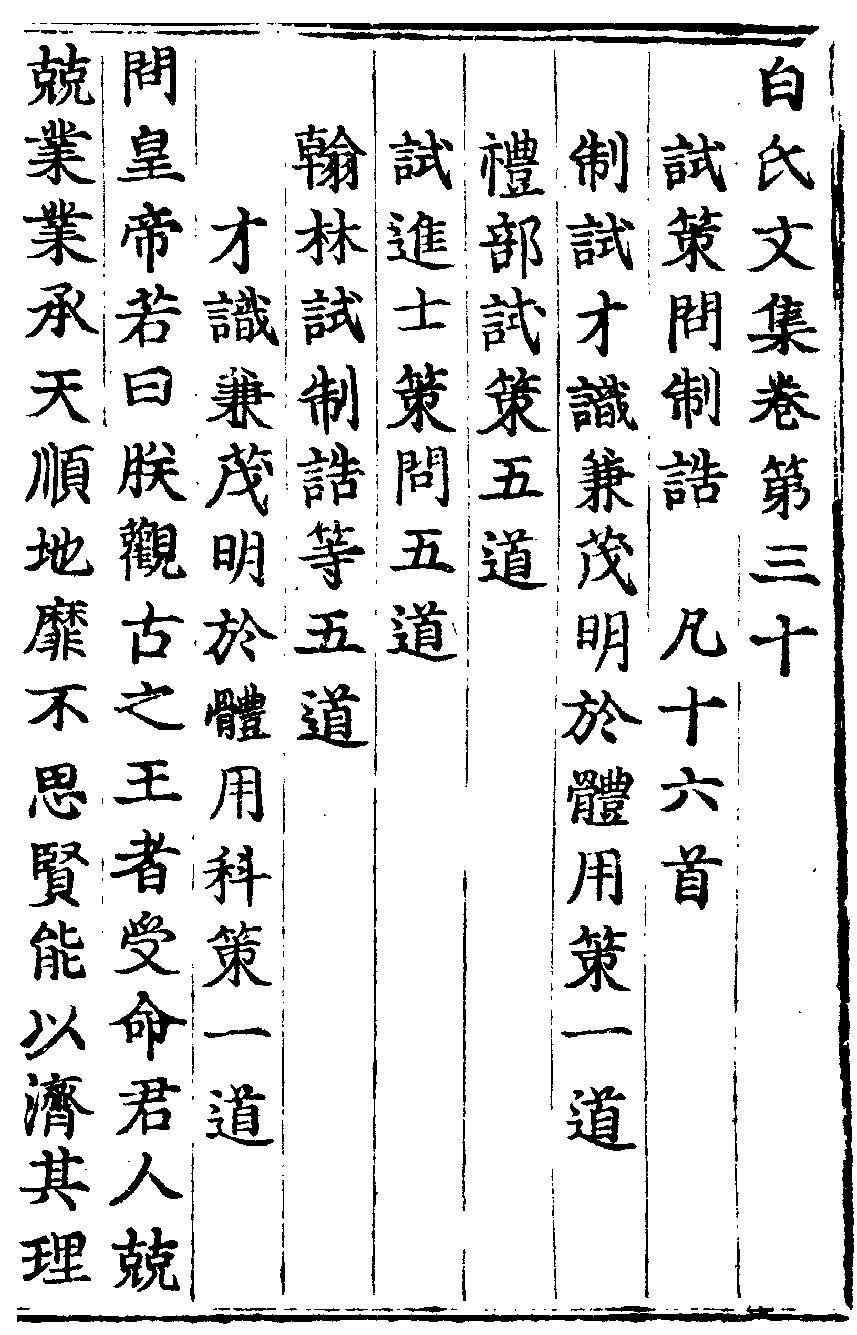 白氏文集卷第三十
試策問制誥　凡十六首
制試才識兼茂明於體用策一道
禮部試策五道
試進士策問五道
翰林試制誥等五道
才識兼茂明於體用科策一道
問皇帝若曰朕觀古之王者受命君人兢
兢業業承天順地靡不思賢能以濟其理